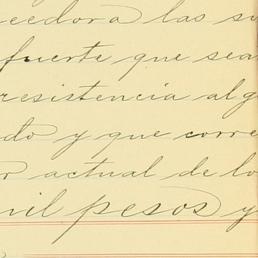 eedora las su
fuerte que sea
resistencia alg
do y que corre
r actual de lo
mil pesos y